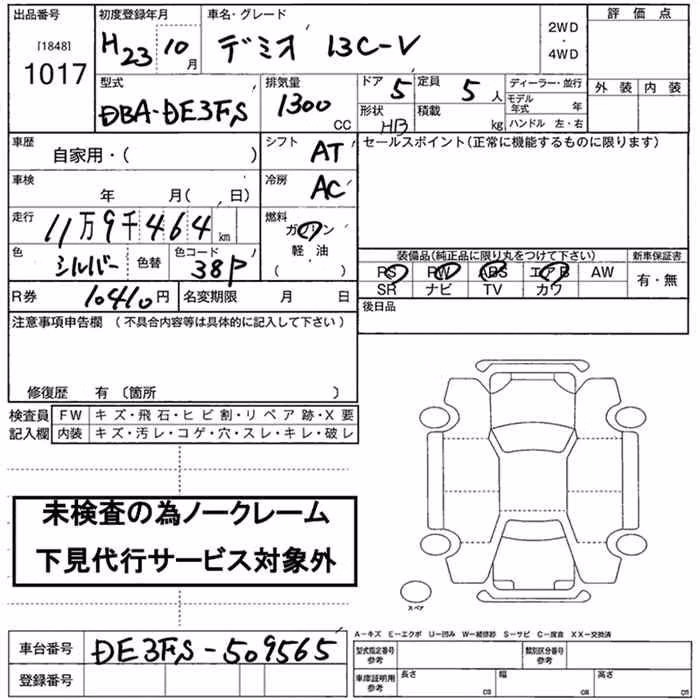 出品番号 [1848] 1017
初度登録年月 H23 10月
車名・グレード デミオ 13C-V
2WD・4WD
評価点
外装 内装
型式 DBA-DE3FS
排気量 1300 CC
ドア 5
定員 5人
形状 HB
積載 kg
ディーラー・並行
モデル年式 年
ハンドル 左・右
車歴 自家用・( )
シフト AT
セールスポイント(正常に機能するものに限ります)
車検 年 月( 日)
冷房 AC
走行 11万9千464km
燃料 ガソリン 軽油 ( )
色 シルバー 色替
色コード 38P
装備品(純正品に限り丸をつけて下さい)
新車保証書
PS PW ABS エアB AW
SR ナビ TV カワ
有・無
R券 10410円
名変期限 月 日
後日品
注意事項申告欄 (不具合内容等は具体的に記入して下さい)
修復歴 有 〔箇所 〕
検査員記入欄
FW キズ・飛石・ヒビ割・リペア跡・X要
内装 キズ・汚レ・コゲ・穴・スレ・キレ・破レ
未検査の為ノークレーム
下見代行サービス対象外
スペア
A−キズ E−エクボ U−凹み W−補修跡 S−サビ C−腐食 XX−交換済
車台番号 DE3FS-509565
登録番号
型式指定番号 参考
類別区分番号 参考
車庫証明用 参考
長さ cm
幅 cm
高さ cm